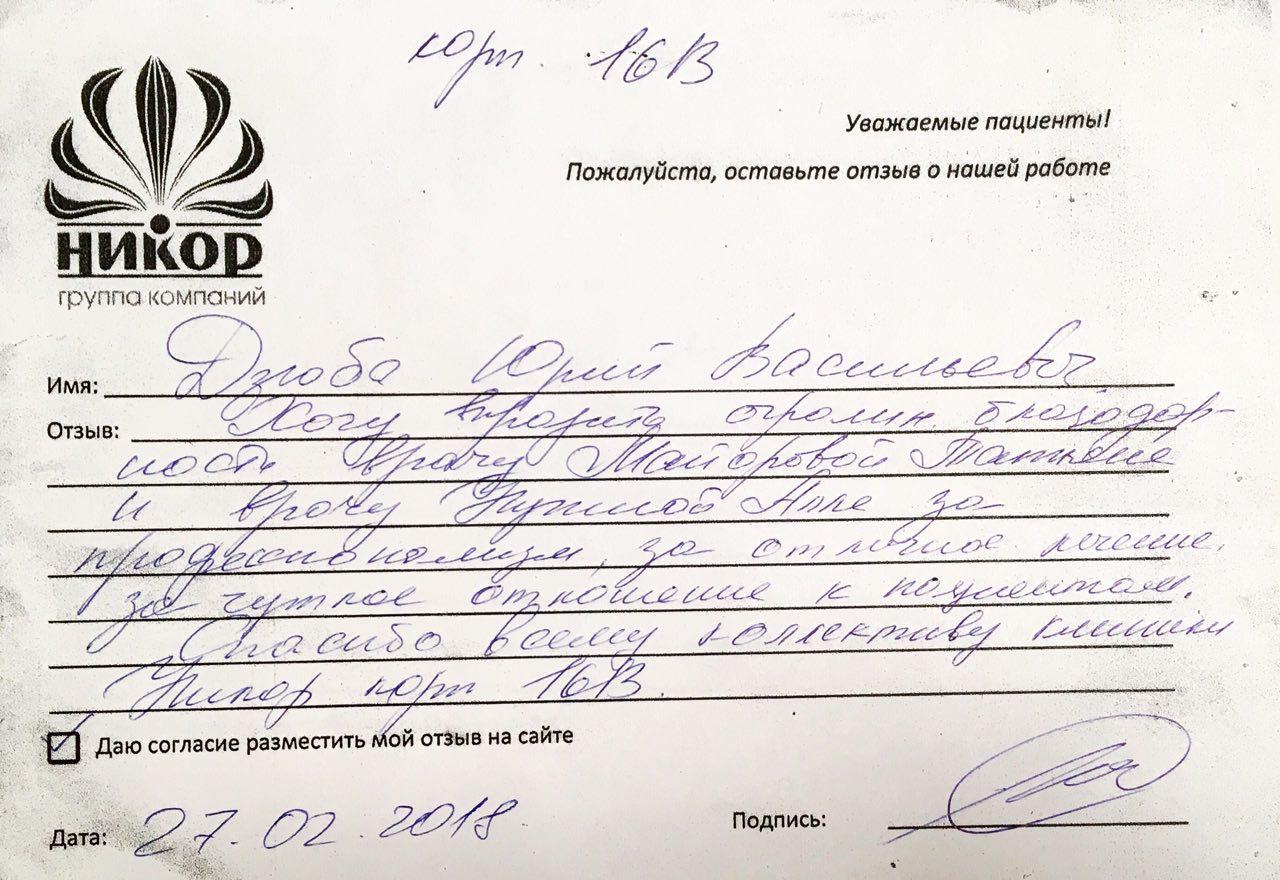 корп. 16В
Уважаемые пациенты!
Пожалуйста, оставьте отзыв о нашей работе
НИКОР
группа компаний
Имя: Дзюба Юрий Васильевич
Отзыв: Хочу выразить огромн. благодар-
ность врачу Майоровой Татьяне
и врачу Нужной Алле за
профессионализм, за отличное лечение,
за чуткое отношение к пациентам.
Спасибо всему коллективу клиники
Никор корп 16В.
Даю согласие разместить мой отзыв на сайте
Дата: 27.02.2018
Подпись: